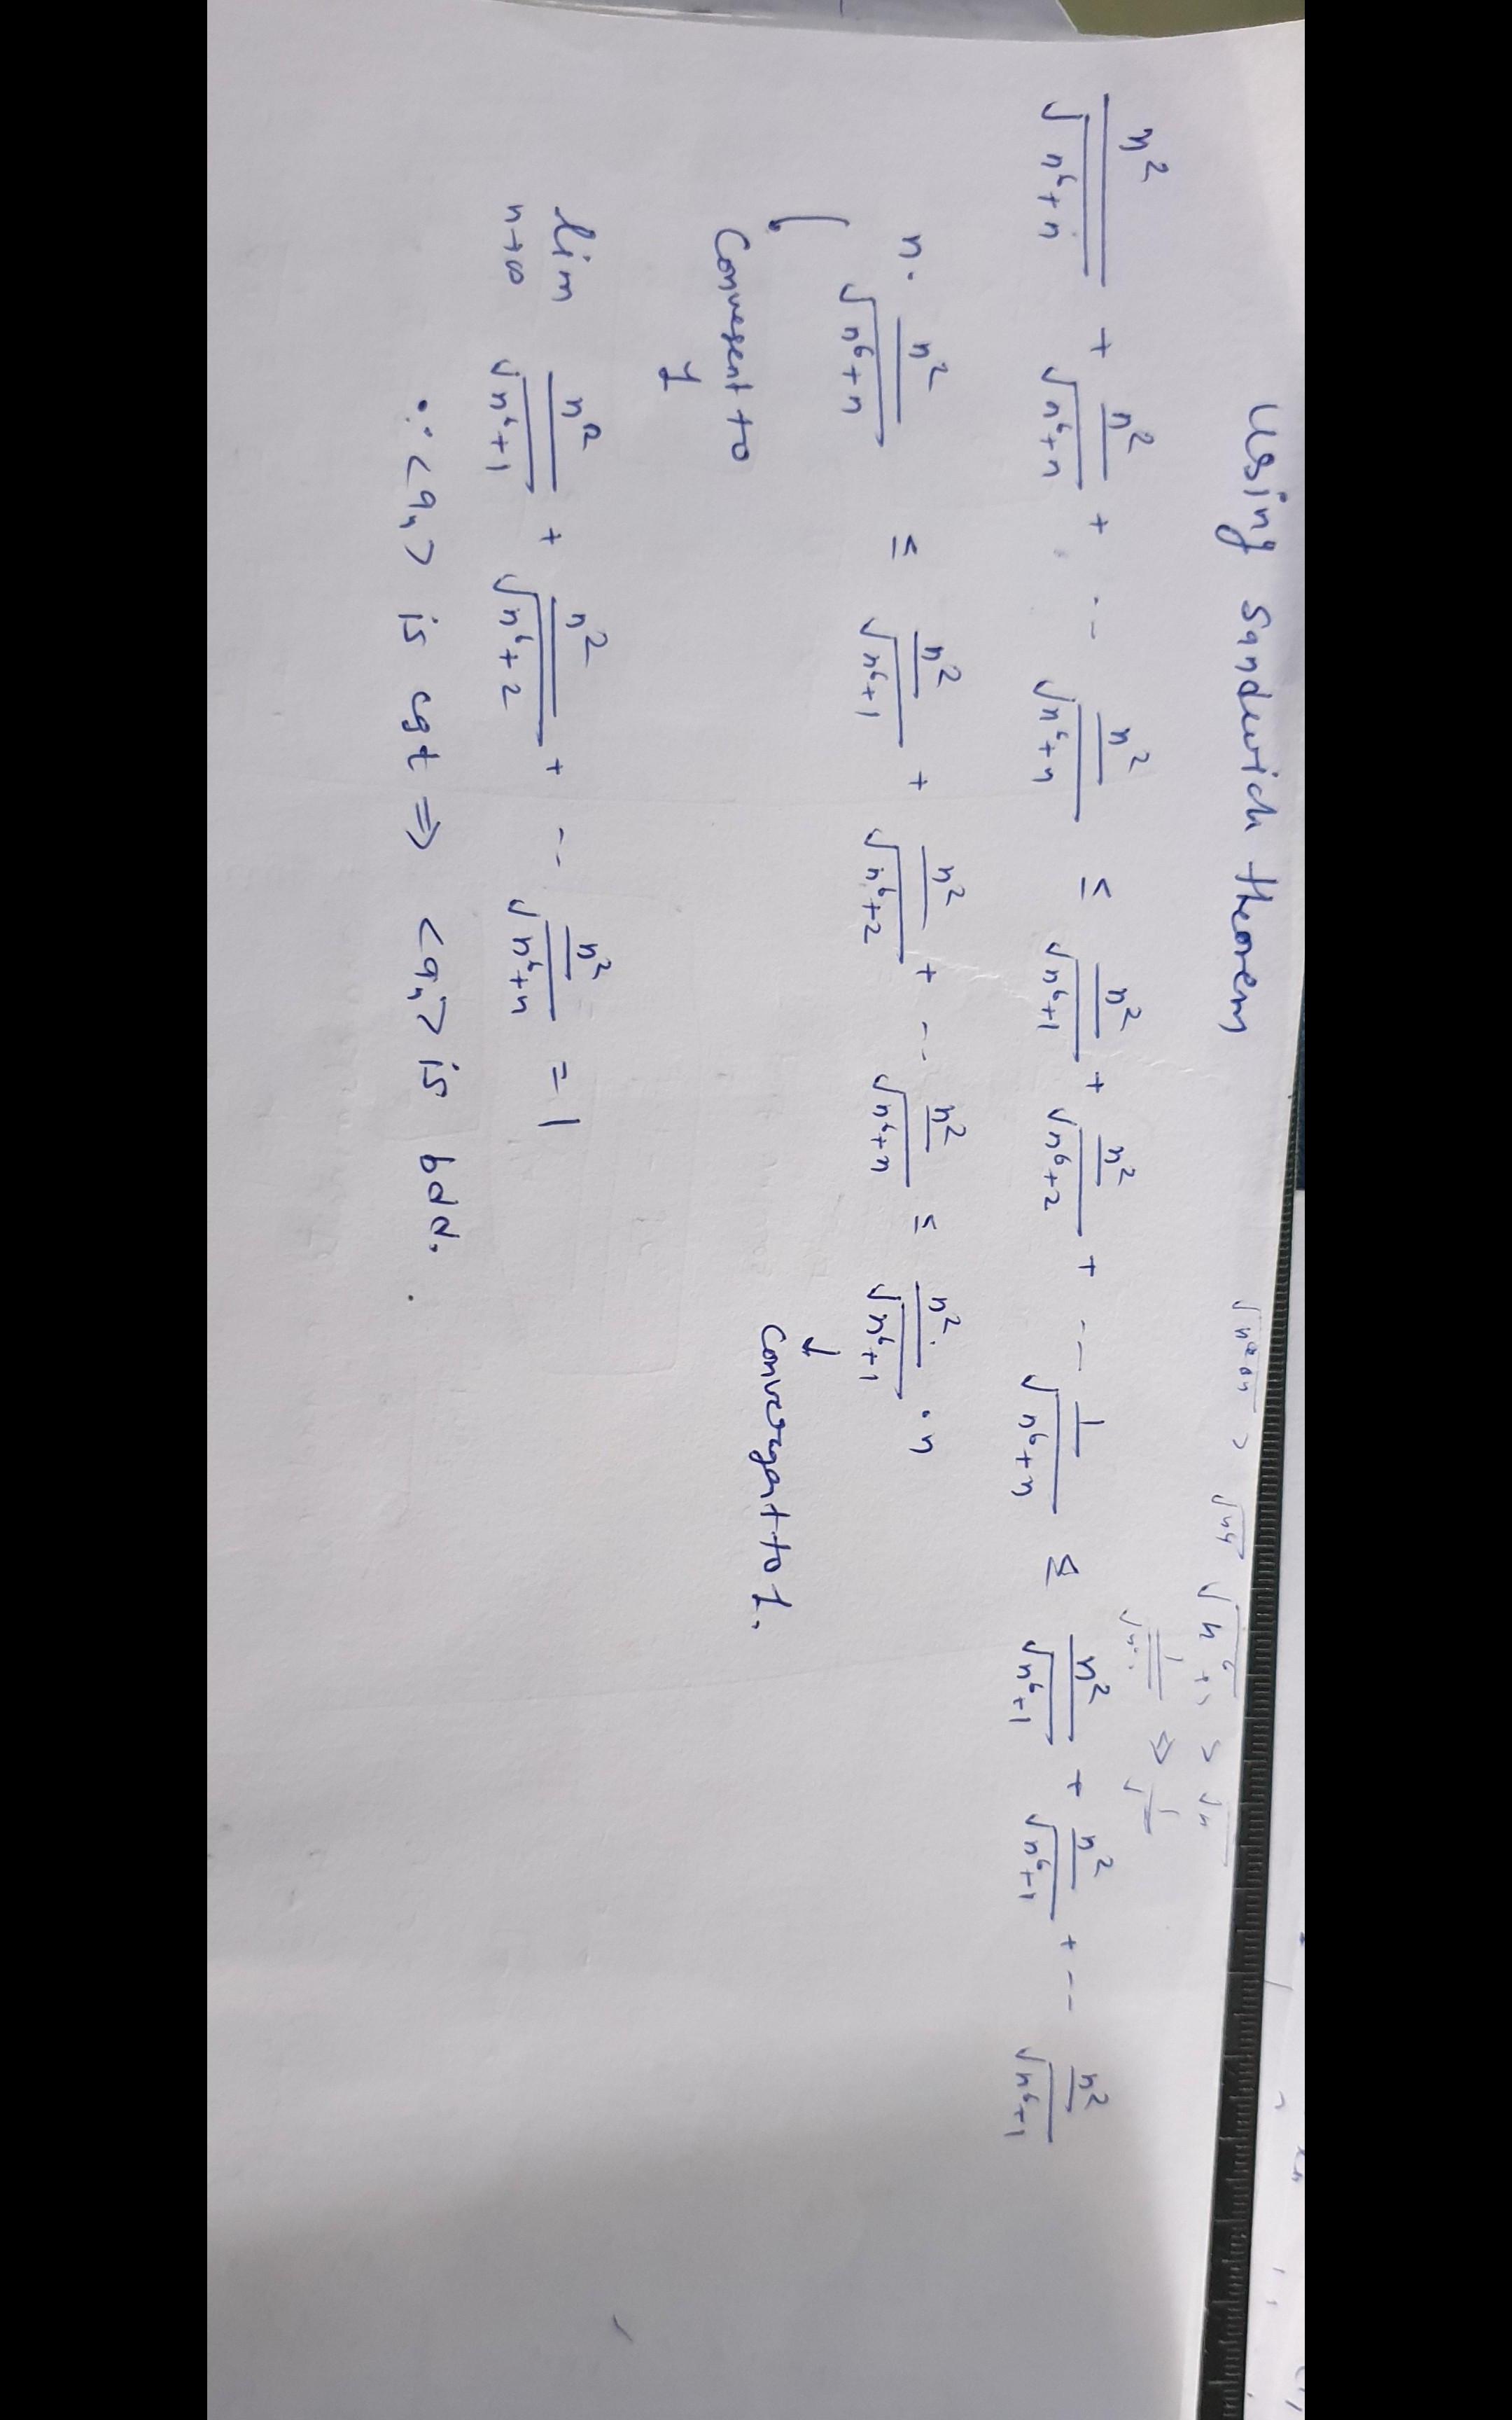 Using Sandwich theorem
√n⁶+n > √n
n²/√n⁶+n + n²/√n⁶+n + -- n²/√n⁶+n ≤ n²/√n⁶+1 + n²/√n⁶+2 + --- 1/√n⁶+n ≤ n²/√n⁶+1 + n²/√n⁶+1 + -- n²/√n⁶+1
n. n²/√n⁶+n ≤ n²/√n⁶+1 + n²/√n⁶+2 + -- n²/√n⁶+n ≤ n²/√n⁶+1 . n
Convegent to 1
Convergent to 1.
lim n→∞ n²/√n⁶+1 + n²/√n⁶+2 + -- n²/√n⁶+n = 1
∵ <aₙ> is cgt ⇒ <aₙ> is bdd.